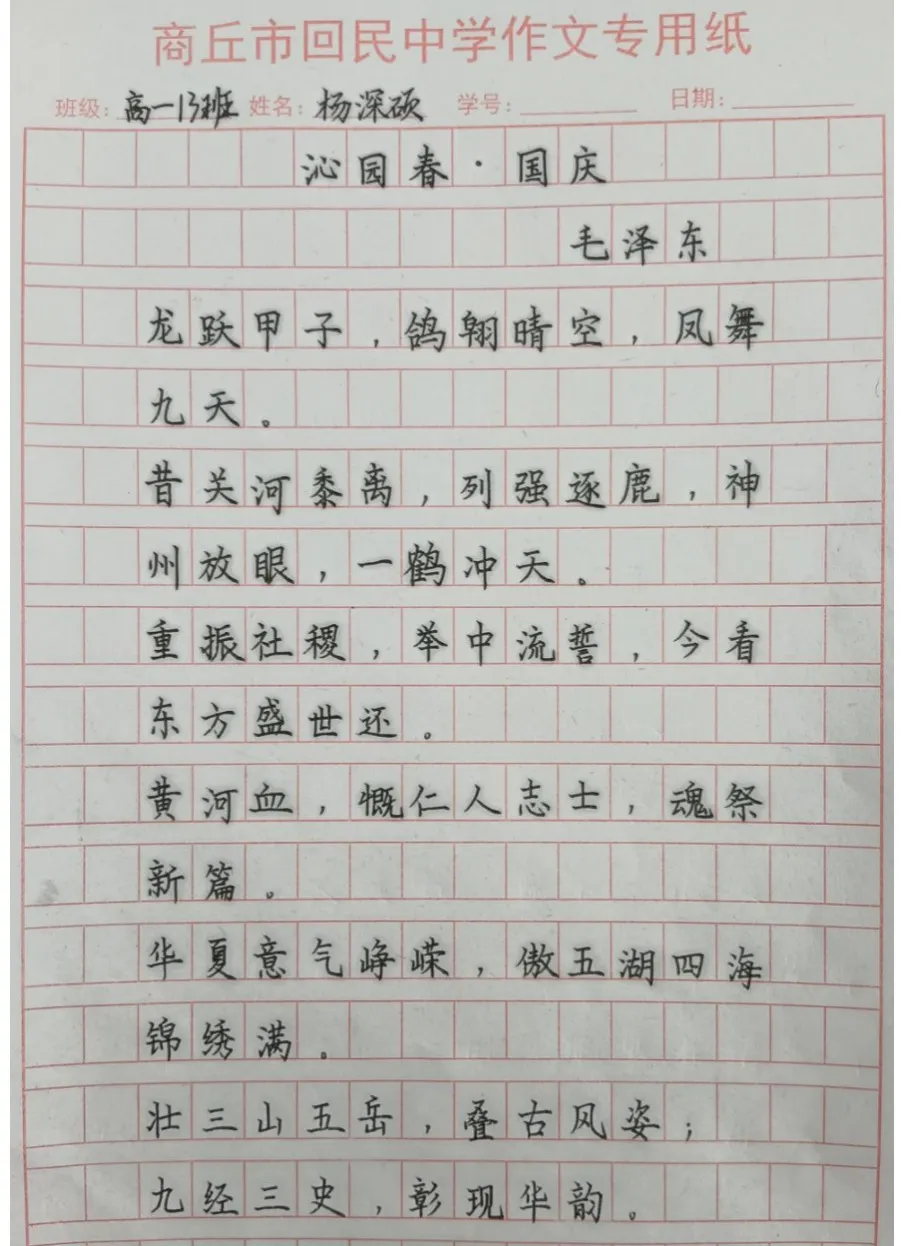 商丘市回民中学作文专用纸
班级：高一13班 姓名：杨深硕 学号： 日期：
沁园春·国庆
毛泽东
龙跃甲子，鸽翱晴空，凤舞
九天。
昔关河黍离，列强逐鹿，神
州放眼，一鹤冲天。
重振社稷，举中流誓，今看
东方盛世还。
黄河血，慨仁人志士，魂祭
新篇。
华夏意气峥嵘，傲五湖四海
锦绣满。
壮三山五岳，叠古风姿；
九经三史，彰现华韵。